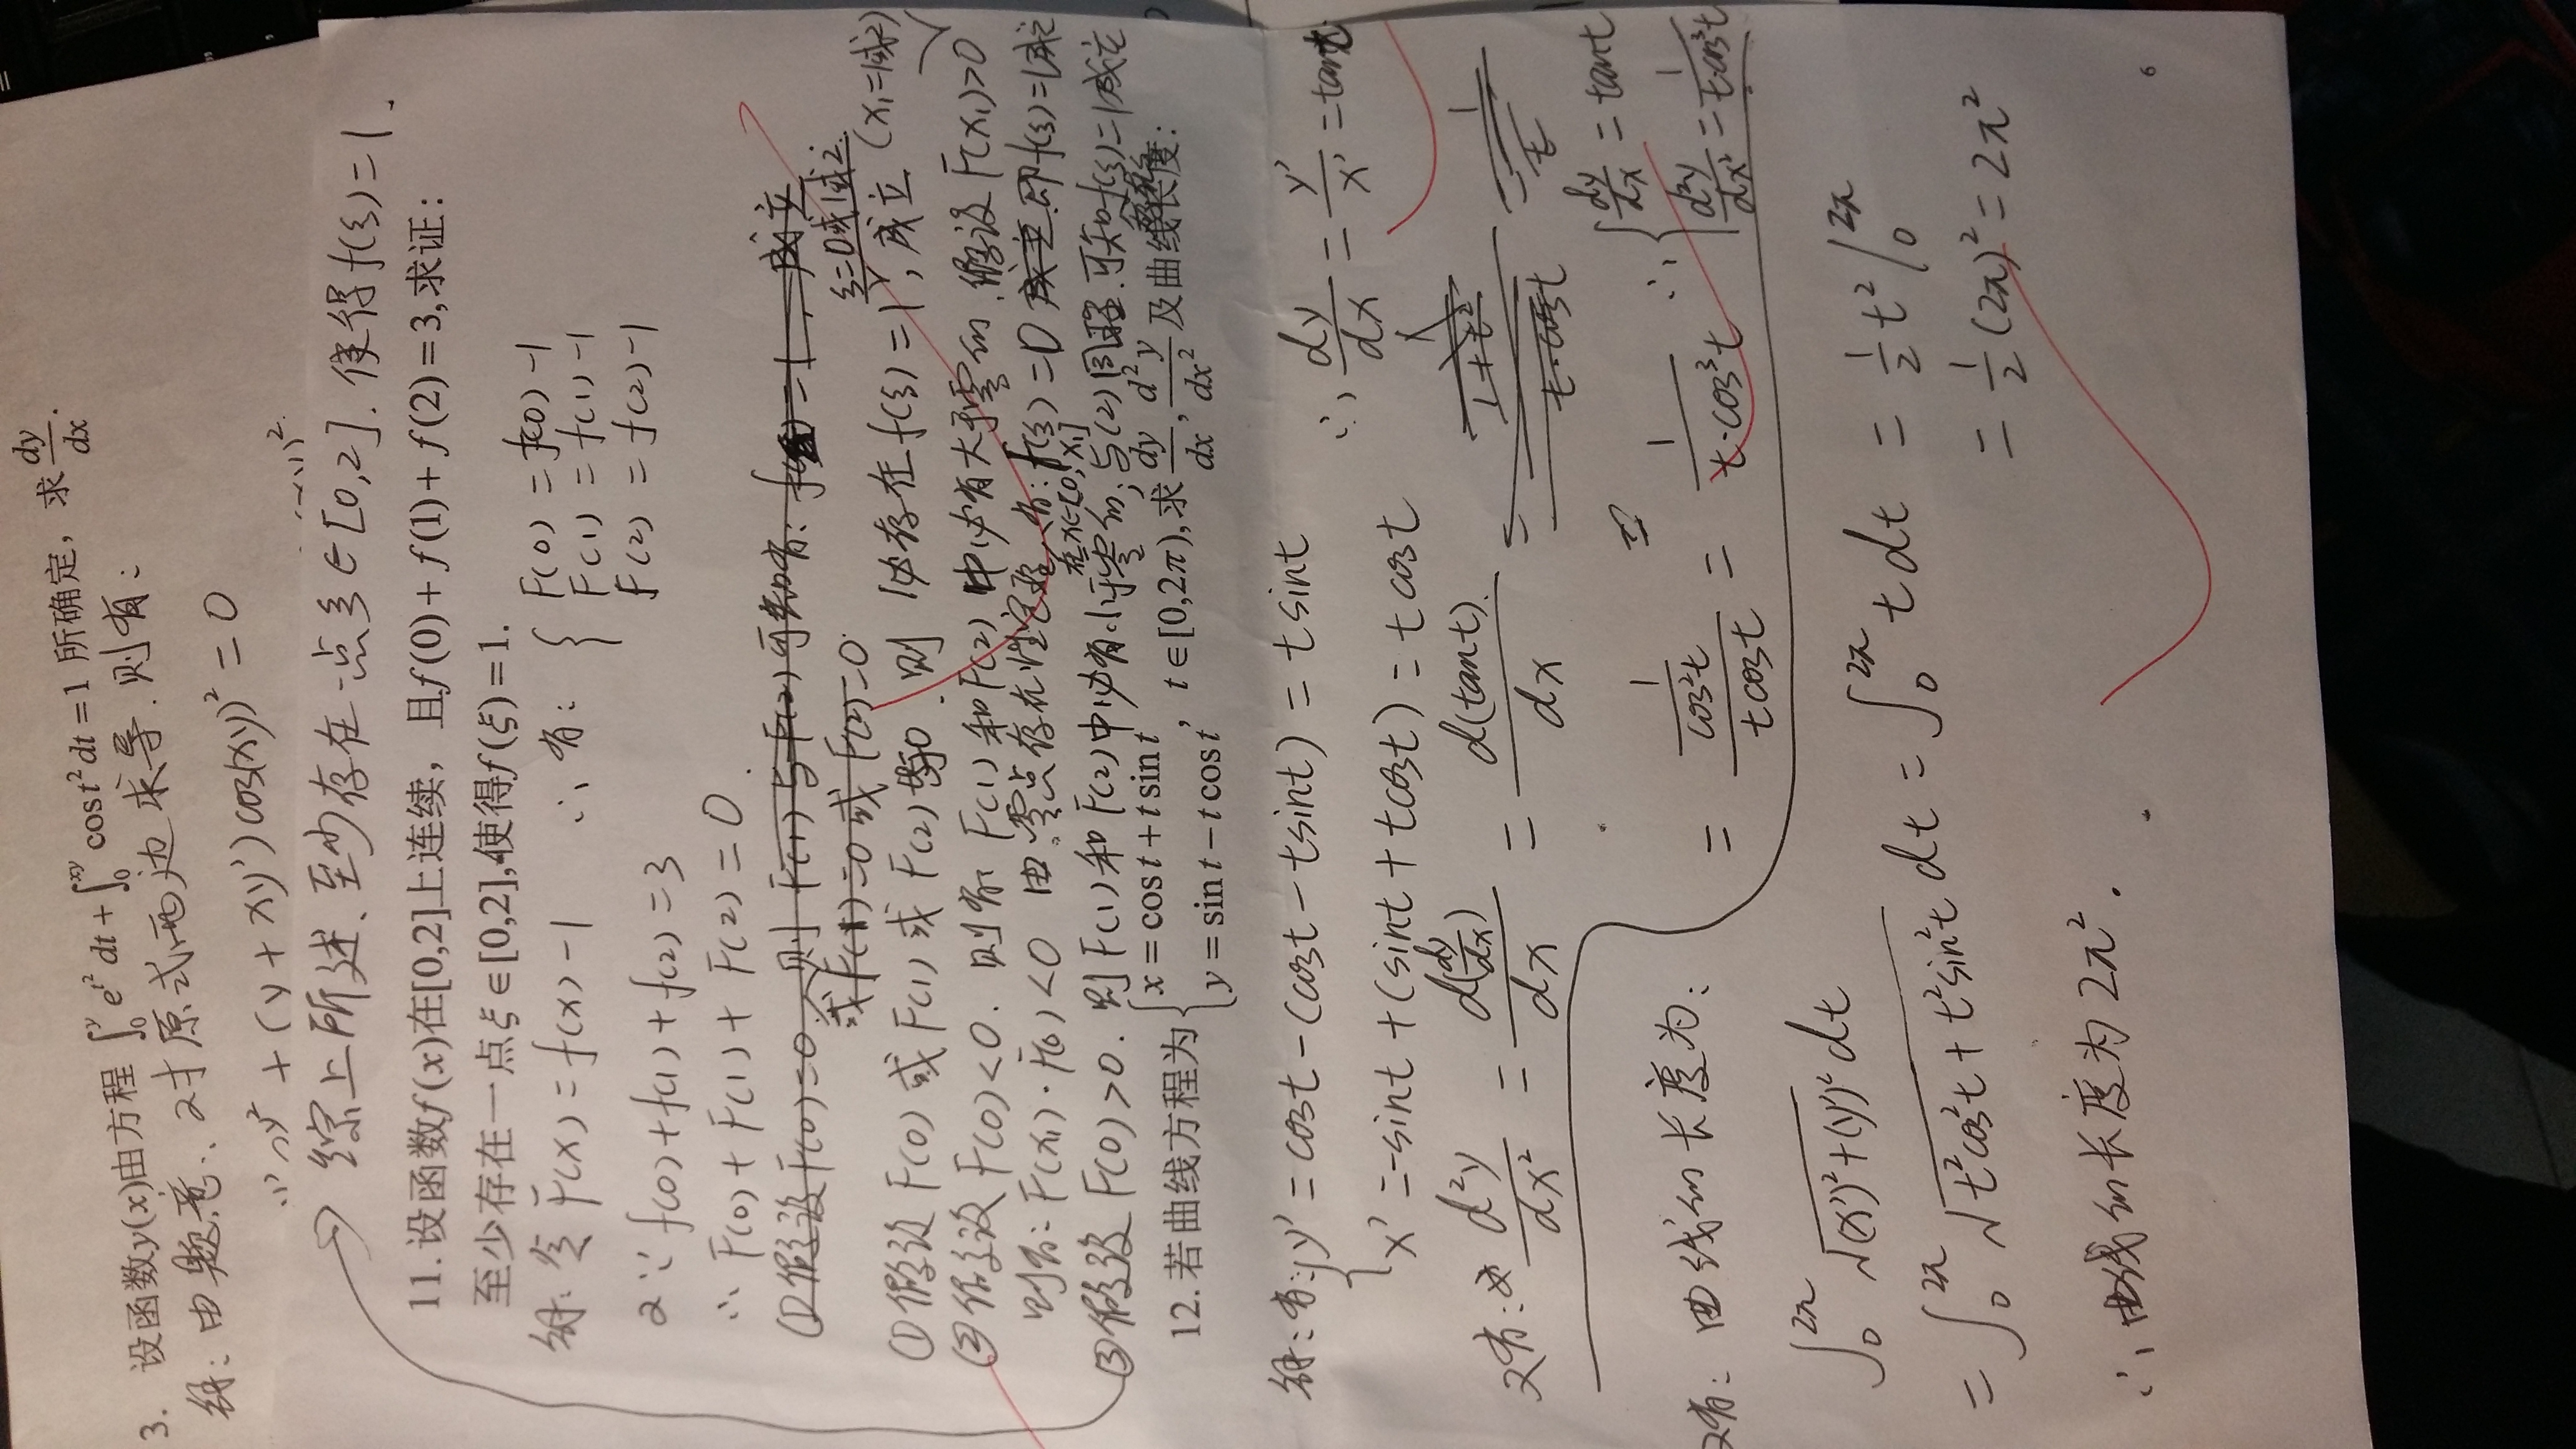 3. 设函数y(x)由方程 ∫₀^y e^{t²}dt + ∫₀^{xy} cos t²dt = 1 所确定, 求 dy/dx.
解: 由题意、对原式两边求导. 则有:
+ (y + xy')cos(xy)² = 0
综上所述、至少存在一点 ξ∈[0,2]. 使得 f(ξ) = 1.
11. 设函数f(x)在[0,2]上连续, 且f(0) + f(1) + f(2) = 3,求证:
至少存在一点 ξ∈[0,2],使得f(ξ) = 1.
解: 令 F(x) = f(x) - 1 ∴有: { F(0) = f(0) - 1
F(1) = f(1) - 1
F(2) = f(2) - 1
又∵ f(0) + f(1) + f(2) = 3
∴ F(0) + F(1) + F(2) = 0
①假设 F(0) = 0
或F(1) = 0 或 F(2) = 0
①假设 F(0) 或 F(1) 或 F(2) 等0. 则 必存在 f(ξ) = 1, 成立
ξ=0或1或2.
②假设 F(0) < 0. 则 F(1) 和 F(2) 中必有大于零的. 假设 F(x₁) > 0 (x₁=1或2)
则有: F(x₁)·F(0) < 0 由零点存在性定理, 有: f(ξ) = 0 即 f(ξ) = 1成立
在x∈[0,x₁]
③假设 F(0) > 0. 则 F(1) 和 F(2) 中必有小于零的, 与(2)同理. 可知f(ξ) = 1成立
12. 若曲线方程为 { x = cos t + t sin t
y = sin t − t cos t , t∈[0,2π),求 dy/dx, d²y/dx² 及曲线长度:
解: 有: { y' = cost - (cost - tsint) = tsint
x' = -sint + (sint + tcost) = tcost
∴ dy/dx = y'/x' = tant.
又有: d²y/dx² = d(dy/dx)/dx = d(tant)/dx
= (1/cos²t)/(tcost) = 1/(t·cos³t) ∴ { dy/dx = tant
d²y/dx² = 1/(tcos³t)
又有: 曲线的长度为:
∫₀^{2π} √((x')² + (y')²) dt
= ∫₀^{2π} √(t²cos²t + t²sin²t) dt = ∫₀^{2π} t dt = ½t² |₀^{2π}
= ½(2π)² = 2π²
∴ 曲线的长度为 2π².
6